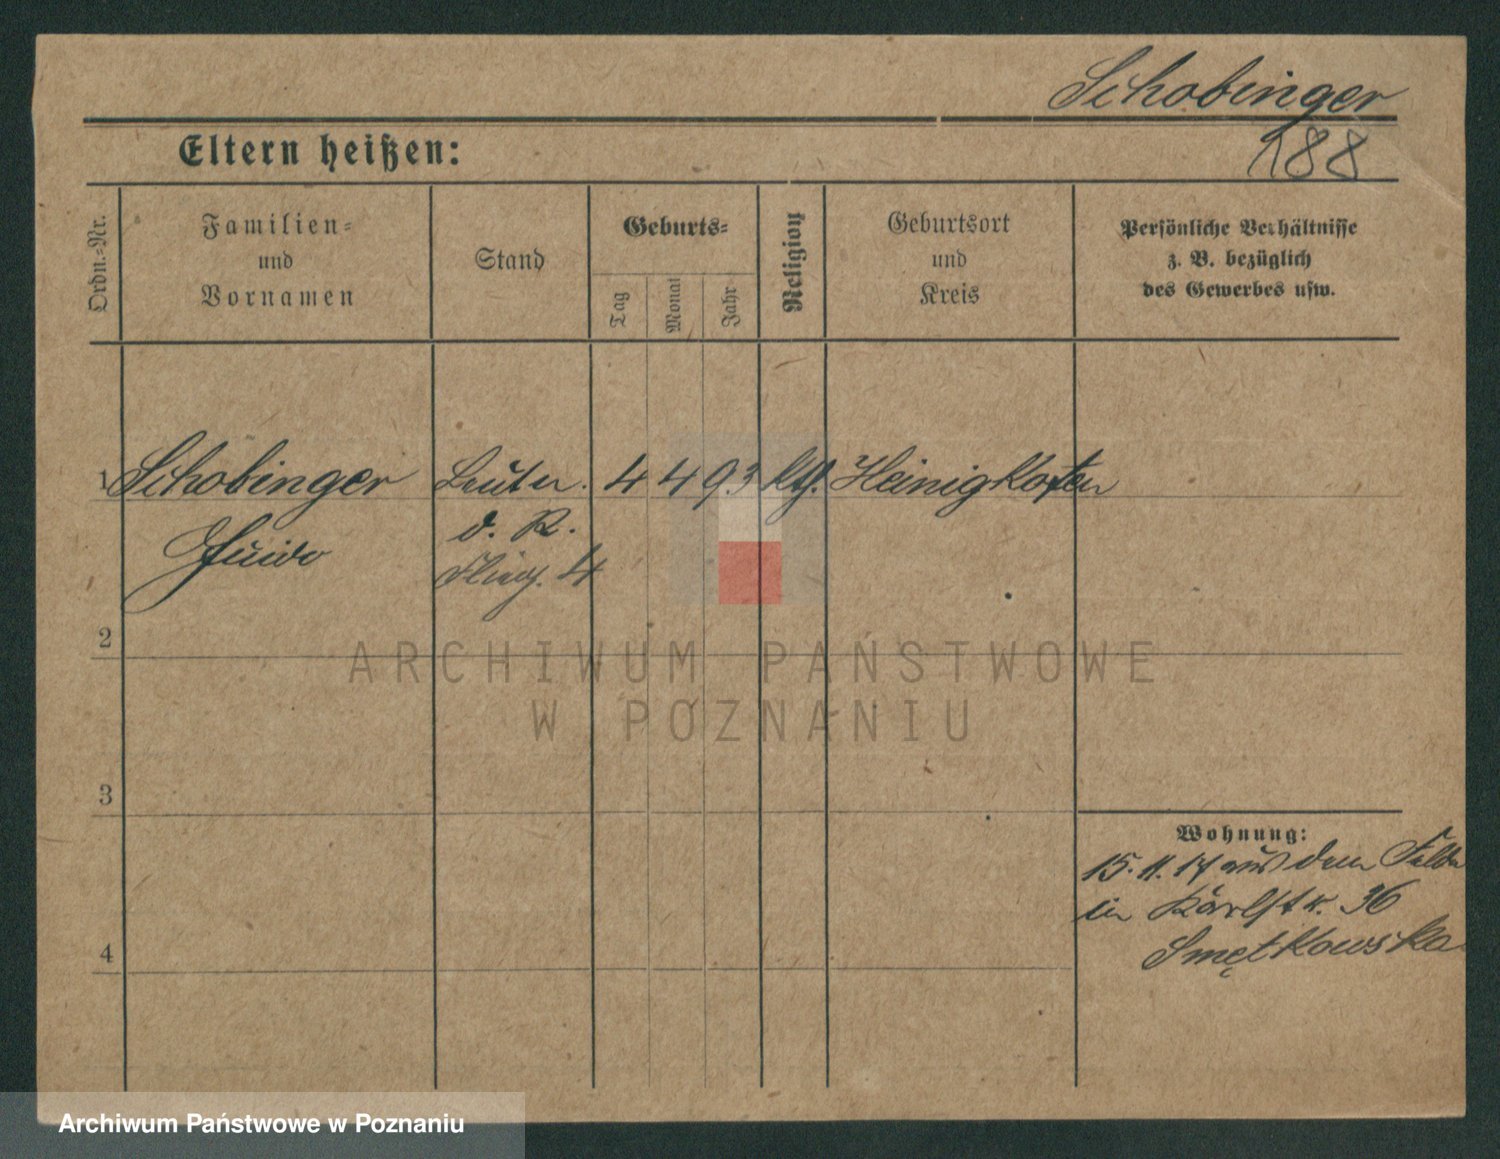 Schobinger
188
Eltern heißen:
Ordn.-Nr.
Familien- und Vornamen
Stand
Geburts-
Tag
Monat
Jahr
Religion
Geburtsort und Kreis
Persönliche Verhältnisse
z. B. bezüglich
des Gewerbes usw.
1 Schobinger Leutn. 4 4 93 kth. Heinigkofen
Guido d. R.
Flieg. 4
2
3
4
Wohnung:
15.11.17 aus dem Felde
in Karlstr. 36
Smętkowska
ARCHIWUM PAŃSTWOWE
W POZNANIU
Archiwum Państwowe w Poznaniu